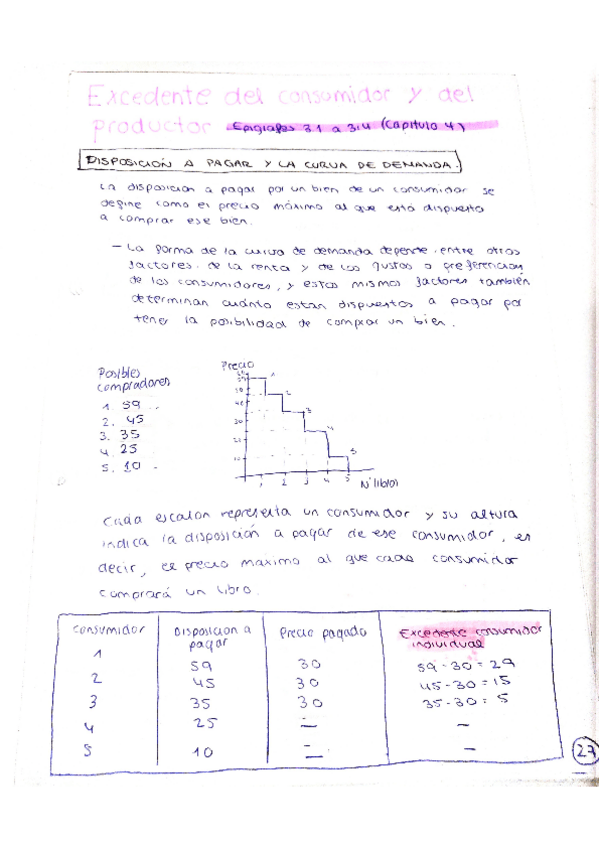 Excedente del consumidor y del
productor Epígrafes 3.1 a 3.4 (Capítulo 4)
DISPOSICIÓN A PAGAR Y LA CURVA DE DEMANDA.
La disposición a pagar por un bien de un consumidor se
define como el precio máximo al que está dispuesto
a comprar ese bien.
- La forma de la curva de demanda depende, entre otros
factores, de la renta y de los gustos o preferencias
de los consumidores, y estos mismos factores también
determinan cuánto están dispuestos a pagar por
tener la posibilidad de comprar un bien.
Posibles
compradores
1. 59
2. 45
3. 35
4. 25
5. 10
Precio
59
50
30
10
1
2
3
4
5
1 2 3 4 5
Nº libros
Cada escalón representa un consumidor y su altura
indica la disposición a pagar de ese consumidor, es
decir, el precio máximo al que cada consumidor
comprará un libro.
Consumidor Disposición a pagar Precio pagado Excedente consumidor individual
1 59 30 59-30=29
2 45 30 45-30=15
3 35 30 35-30=5
4 25 - -
5 10 - -
27